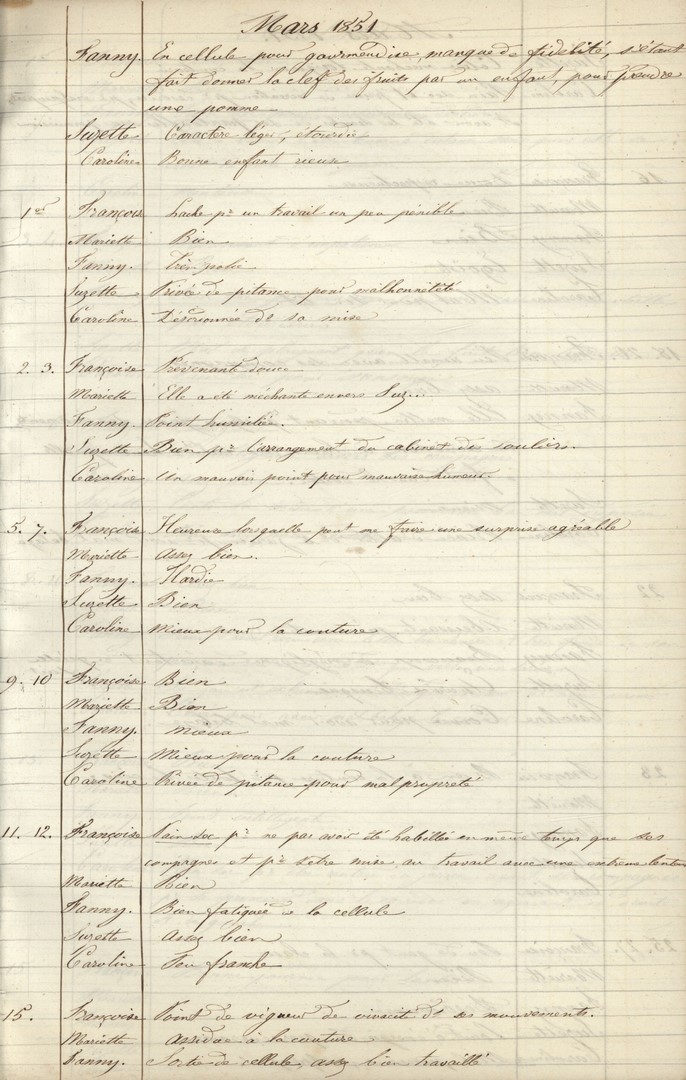 Mars 1851
Fanny. En cellule pour gourmandise, manque de fidélité, s'étant
fait donner la clef des fruits par un enfant, pour prendre
une pomme
Suzette Caractère léger, étourdie
Caroline Bonne enfant rieuse
1er Françoise Lache pr un travail un peu pénible.
Mariette Bien
Fanny. Très polie
Suzette Privée de pitance pour malhonnêteté
Caroline Désordonnée ds sa mise
2. 3. Françoise Prévenante douce
Mariette Elle a été méchante envers Suz...
Fanny. Point humiliée.
Suzette Bien pr l'arrangement du cabinet des souliers.
Caroline Un mauvais point pour mauvaise humeur.
5. 7. Françoise Heureuse lorsquelle peut me faire une surprise agréable
Mariette Assez bien.
Fanny. Hardie
Suzette Bien
Caroline Mieux pour la couture
9. 10 Françoise Bien
Mariette Bien
Fanny. Mieux
Suzette Mieux pour la couture
Caroline Privée de pitance pour malpropreté
11. 12. Françoise Pain sec pr ne pas avoir été habillée en même temps que ses
compagnes et pr s'etre mise au travail avec une extrême lenteur
Mariette Bien
Fanny. Bien fatiguée de la cellule
Suzette Assez bien
Caroline Peu franche
15. Françoise Point de vigueur de vivacité ds ses mouvements.
Mariette Assidue à la couture
Fanny. Sortie de cellule, assez bien travaillé